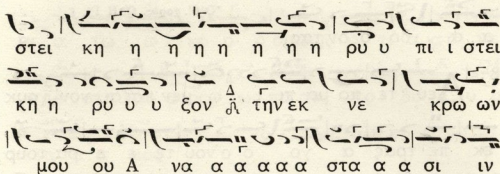 στει κη η η η η η η η ρυ υ πι ι στει
κη η ρυ υ υ ξον Δ την εκ νε κρω ων
μου ου Α να α α α α α στα α α σι ιν